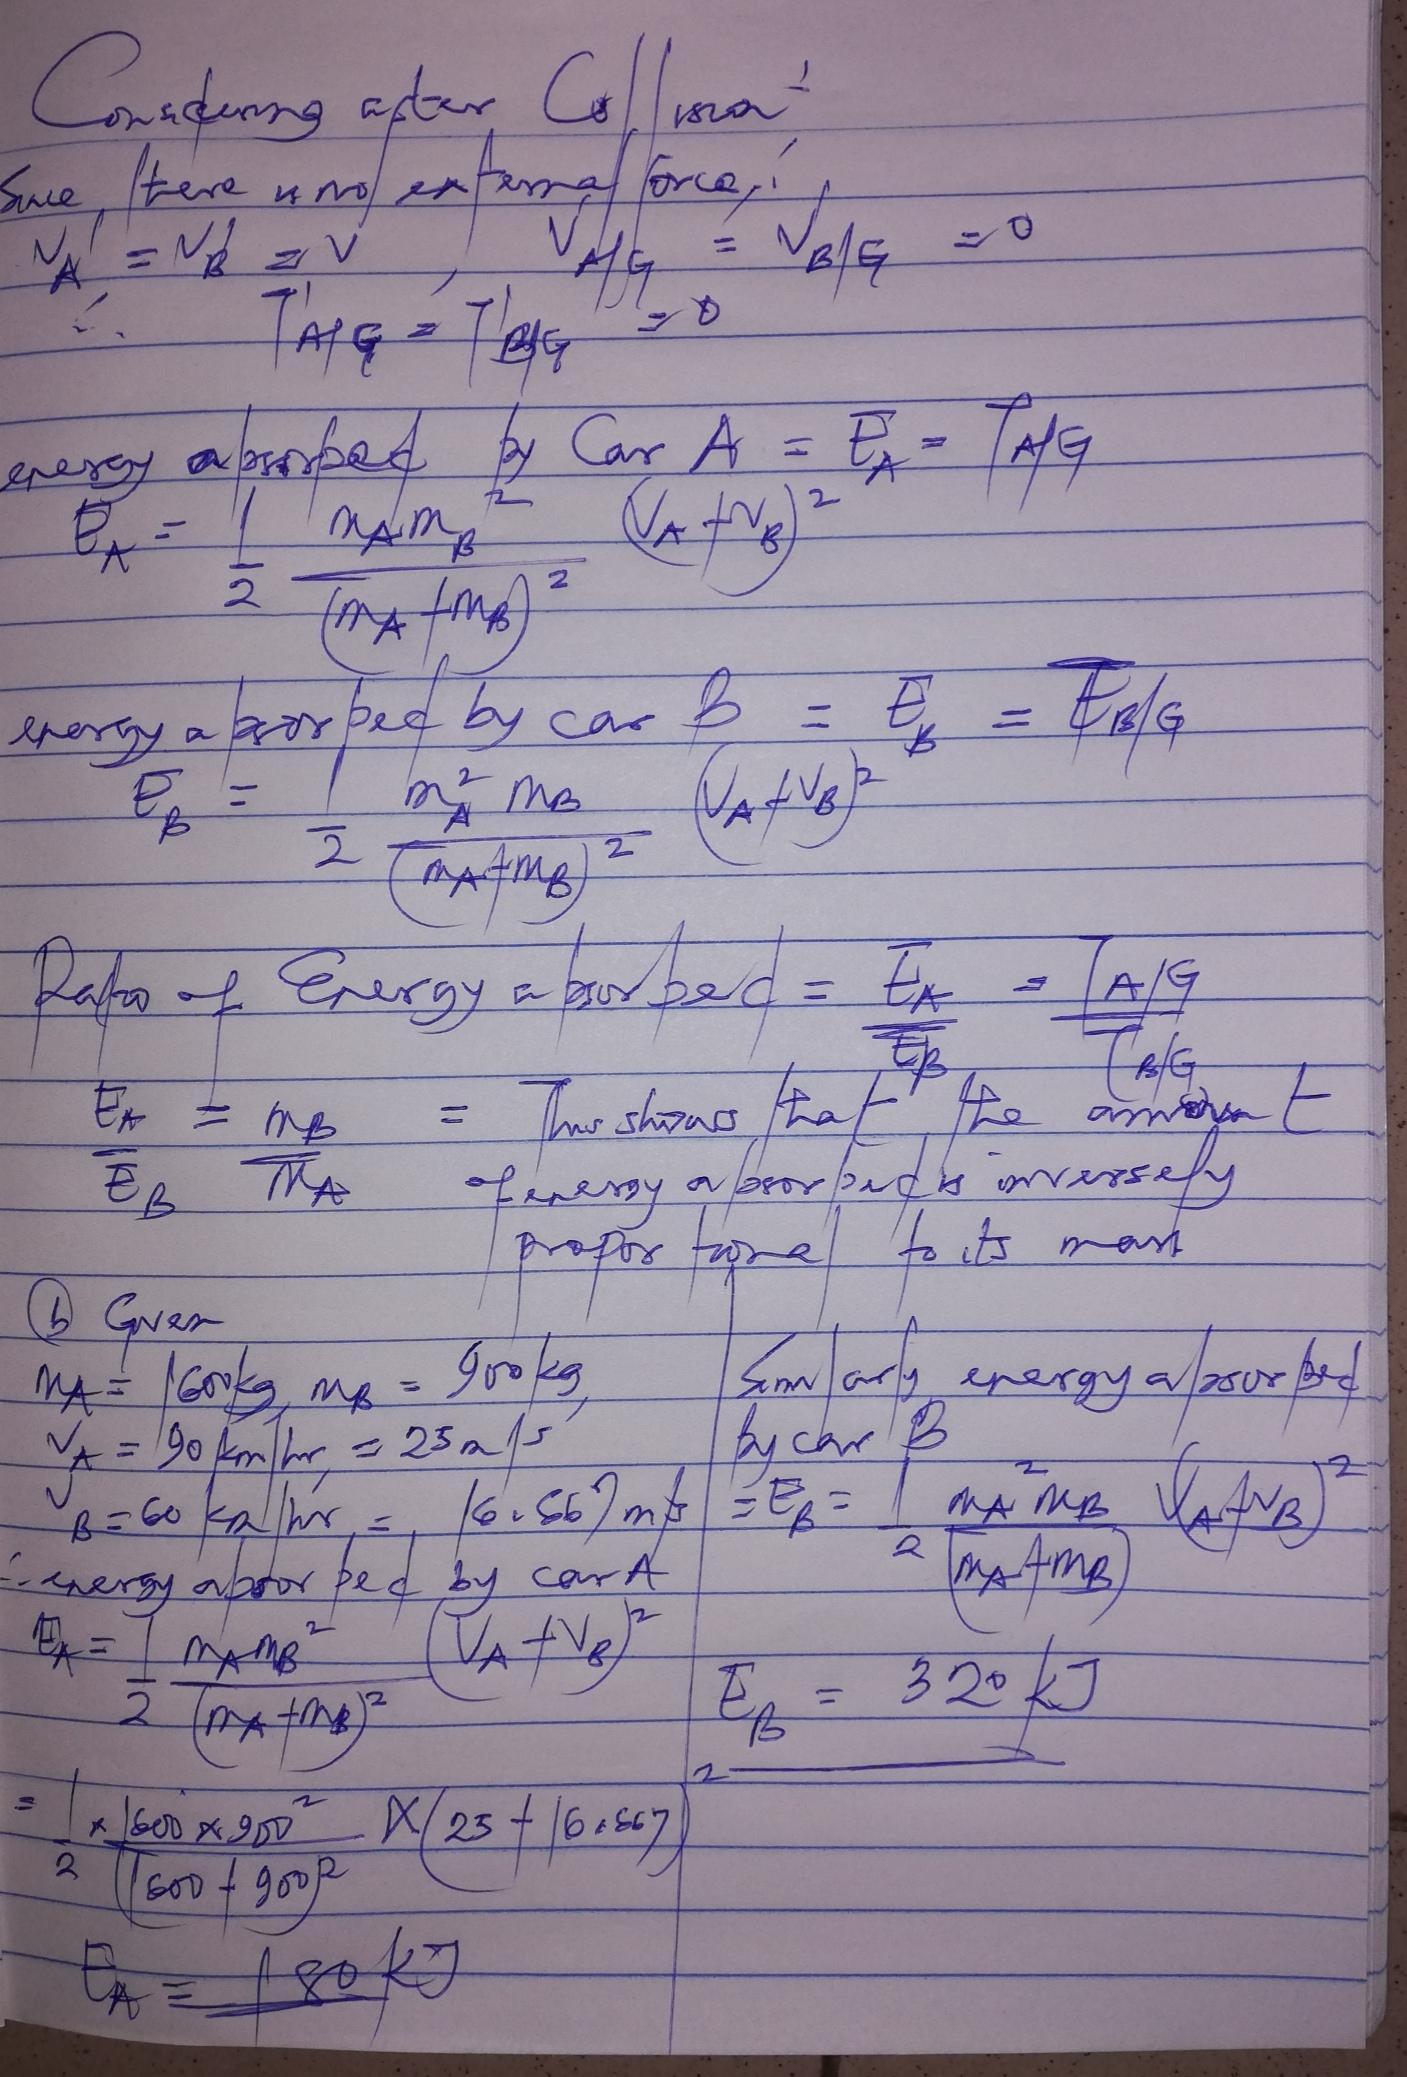 Considering after Collision
Since, there is no external force,
V'A = V'B = V , V'A/G = V'B/G = 0
∴ T'A/G = T'B/G = 0
energy absorbed by Car A = EA = TA/G
EA = 1/2 mA mB² / (mA + mB)² (VA + VB)²
energy absorbed by car B = EB = TB/G
EB = 1/2 mA² mB / (mA + mB)² (VA + VB)²
Ratio of Energy absorbed = EA / EB = TA/G / TB/G
EA / EB = mB / mA = This shows that the amount
of energy absorbed is inversely
proportional to its mass
(b) Given
mA = 1600kg, mB = 900kg,
VA = 90 km/hr, = 25 m/s,
VB = 60 km/hr, = 16.667 m/s
∴ energy absorbed by car A
EA = 1/2 mA mB² / (mA + mB)² (VA + VB)²
= 1/2 × 1600 × 900² / (1600 + 900)² × (25 + 16.667)²
EA = 180 kJ
Similarly energy absorbed
by car B
= EB = 1/2 mA² mB / (mA + mB) (VA + VB)²
EB = 320 kJ